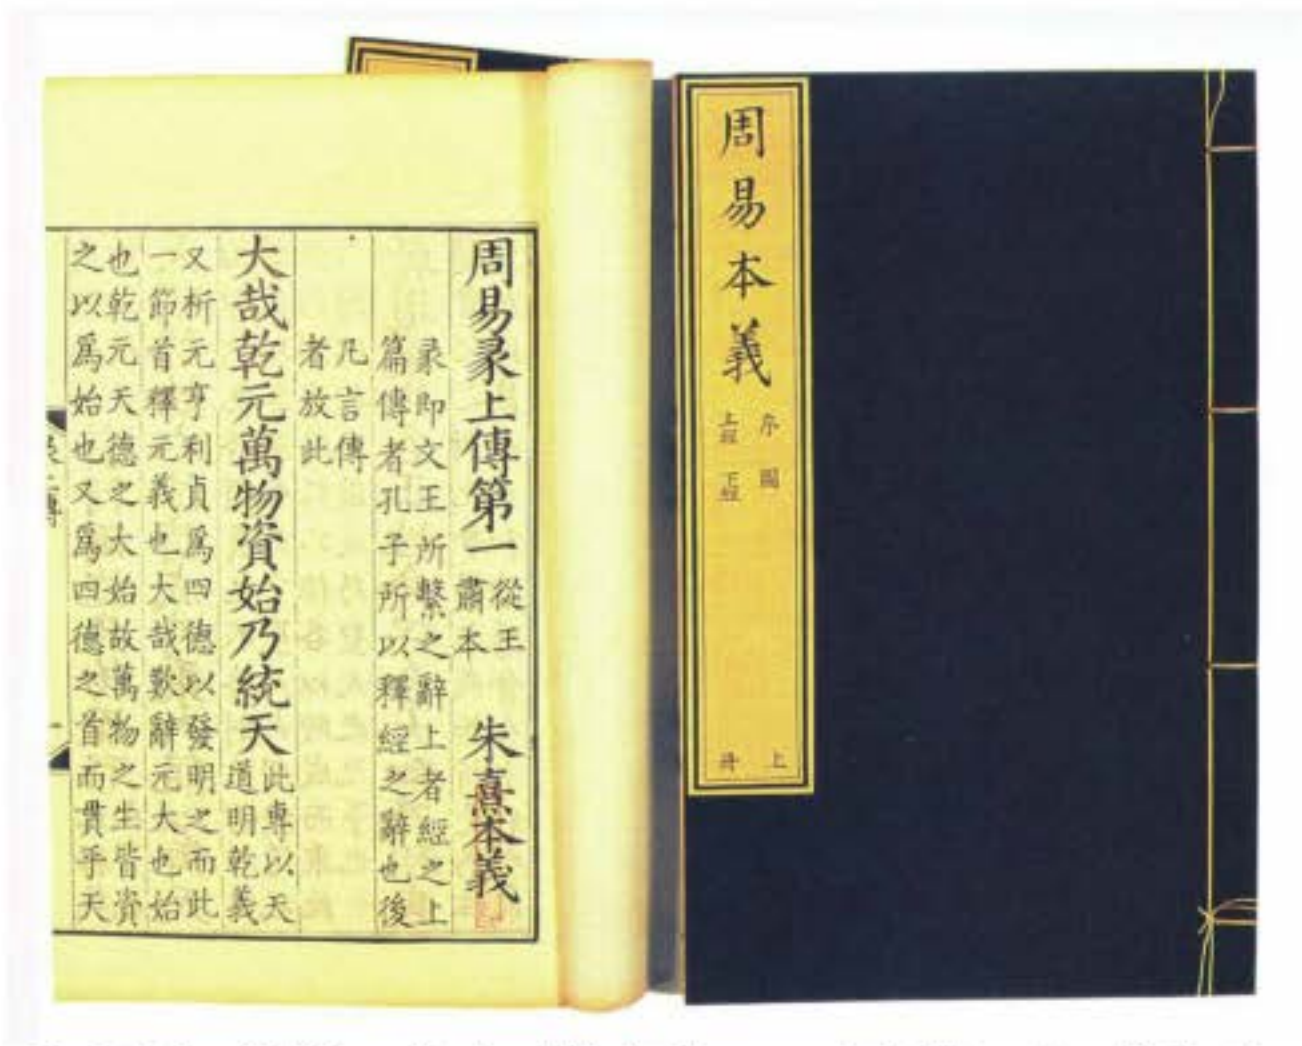 周易本義
序圖
上經
下經
上
冊
周易彖上傳第一
從王
肅本
朱熹本義
彖即文王所繫之辭上者經之上
篇傳者孔子所以釋經之辭也後
凡言傳
者放此
大哉乾元萬物資始乃統天
此專以天
道明乾義
又析元亨利貞爲四德以發明之而此
一節首釋元義也大哉歎辭元大也始
也乾元天德之大始故萬物之生皆資
之以爲始也又爲四德之首而貫乎天